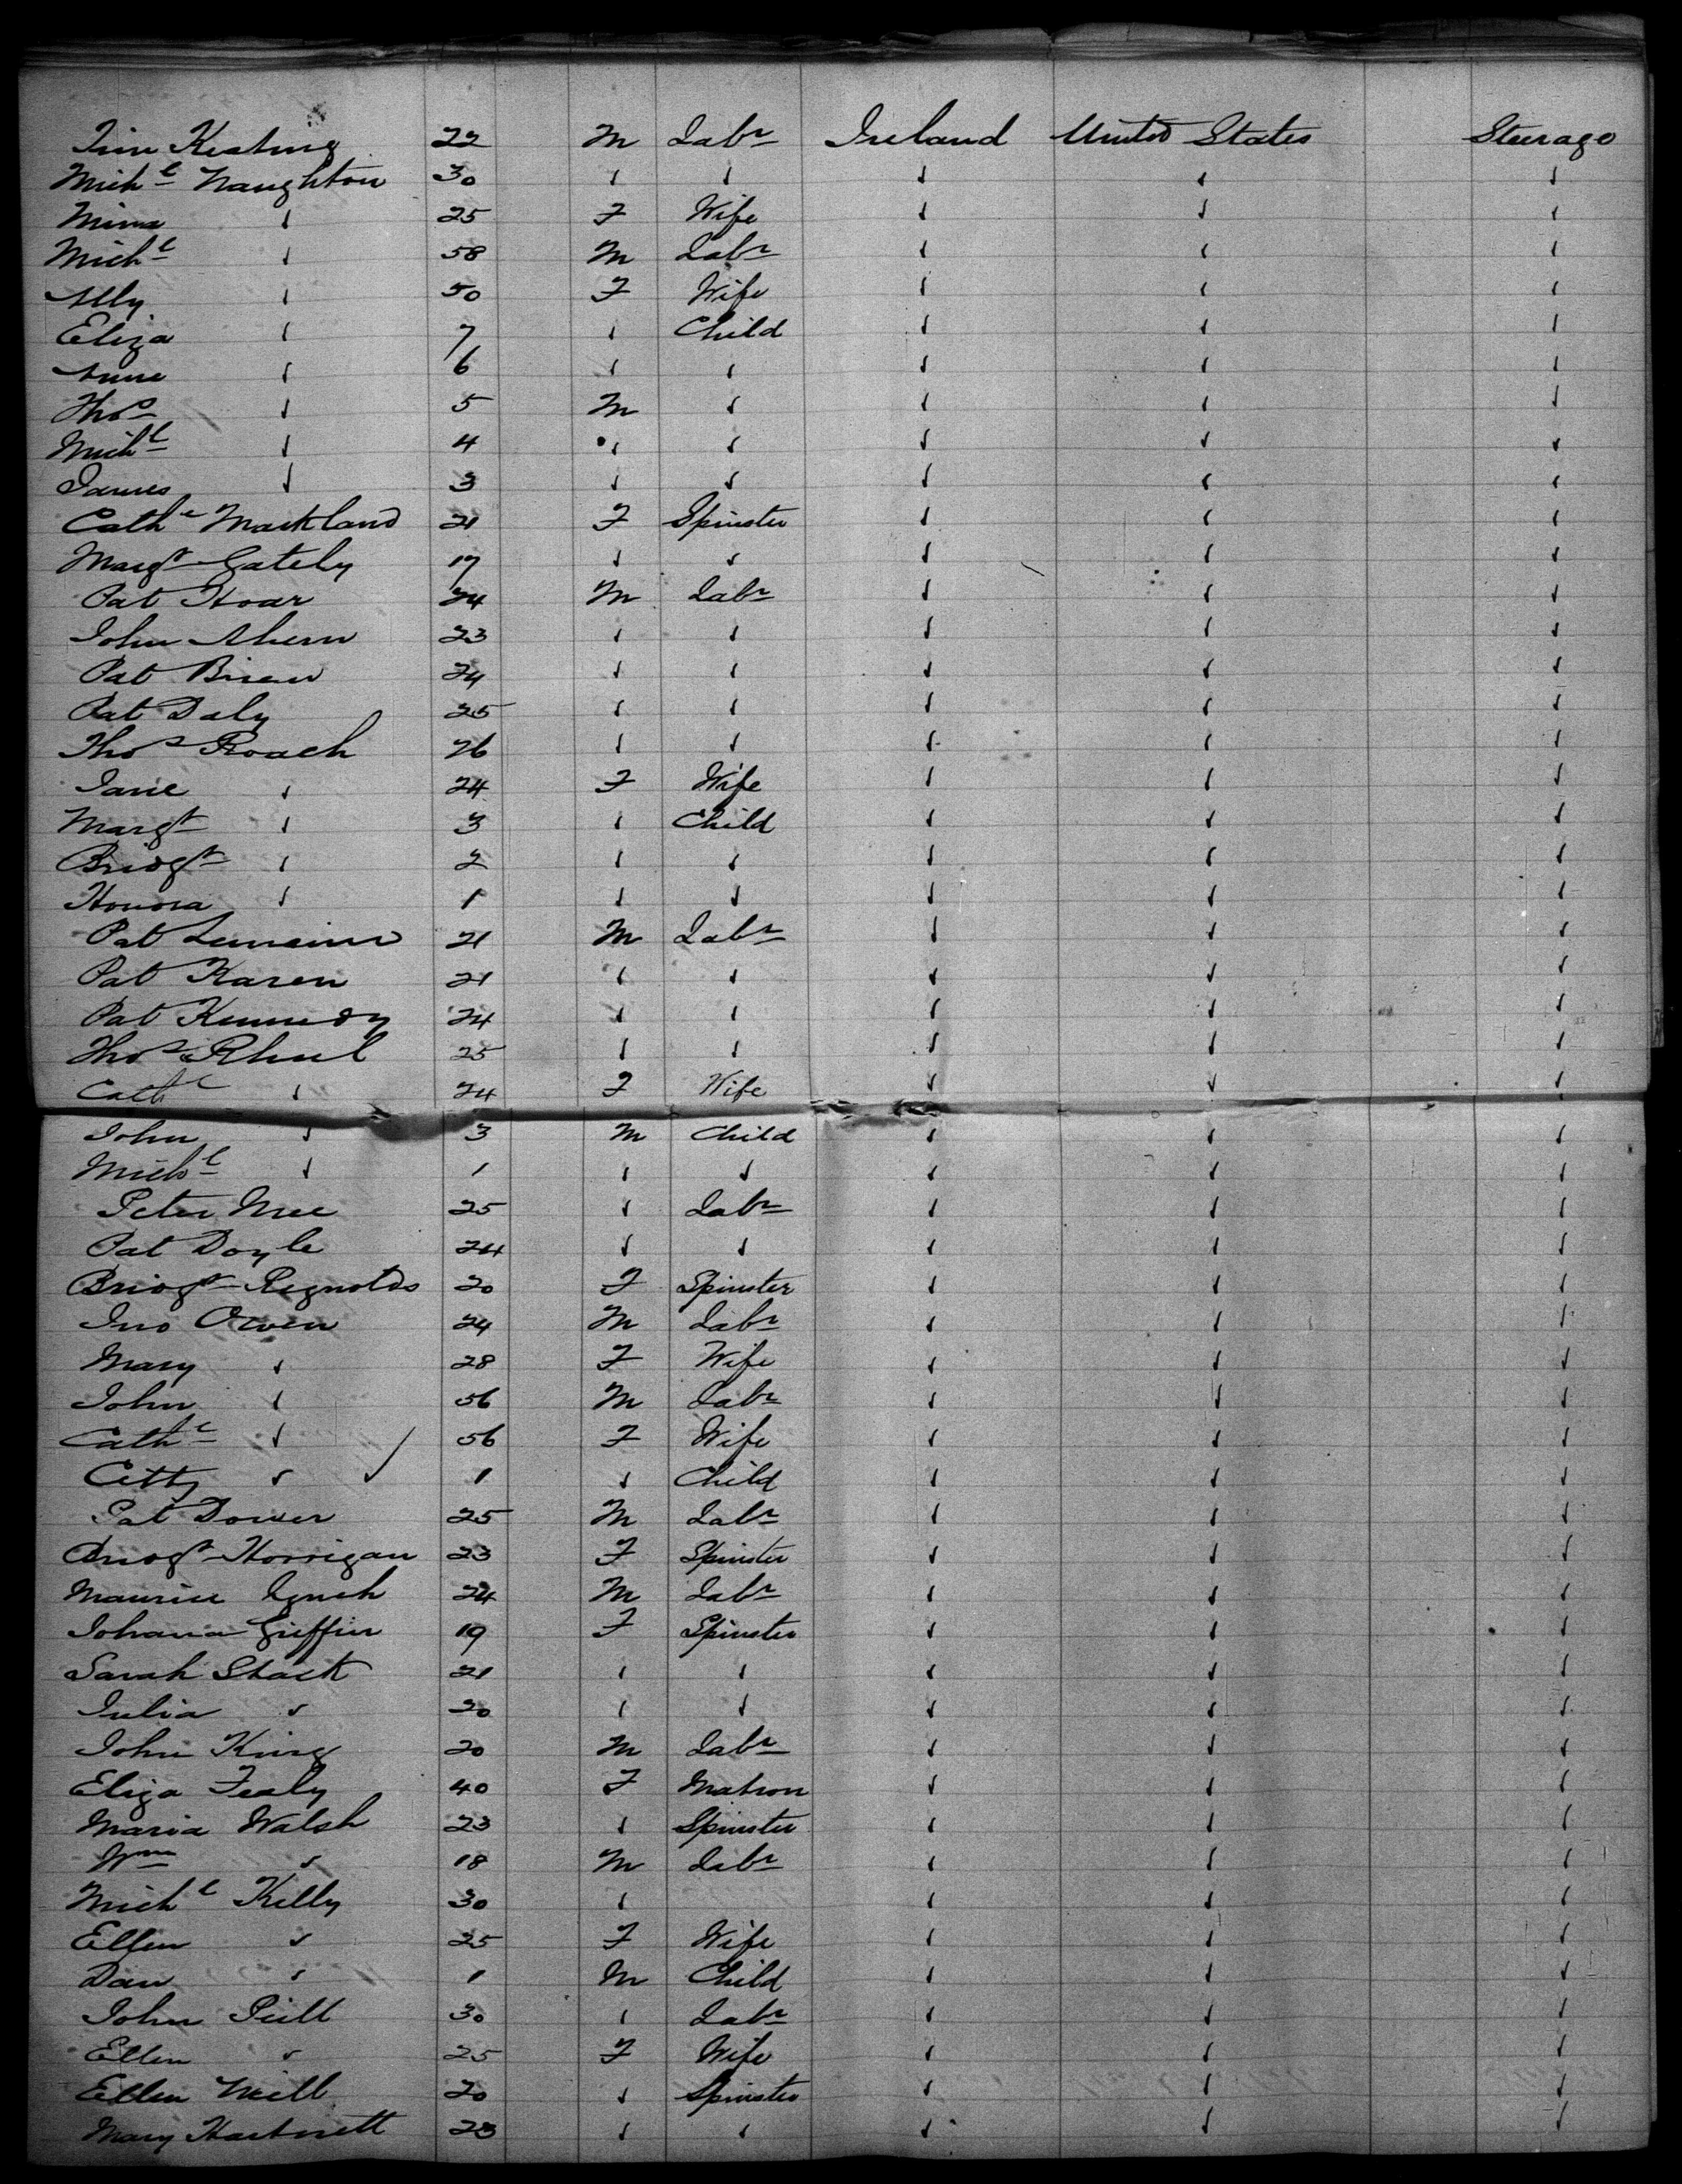 Tim Keating 22 M Labr Ireland United States Steerage
Michl Naughton 30 ✓ ✓ ✓ ✓ ✓
Mima ✓ 25 F Wife ✓ ✓ ✓
Michl ✓ 58 M Labr ✓ ✓ ✓
Ally ✓ 50 F Wife ✓ ✓ ✓
Eliza ✓ 7 ✓ Child ✓ ✓ ✓
Anne ✓ 6 ✓ ✓ ✓ ✓ ✓
Thos ✓ 5 M ✓ ✓ ✓ ✓
Michl ✓ 4 ✓ ✓ ✓ ✓ ✓
James ✓ 3 ✓ ✓ ✓ ✓ ✓
Cathe Markland 21 F Spinster ✓ ✓ ✓
Margt Gately 17 ✓ ✓ ✓ ✓ ✓
Pat Hoar 24 M Labr ✓ ✓ ✓
John Ahern 23 ✓ ✓ ✓ ✓ ✓
Pat Brien 24 ✓ ✓ ✓ ✓ ✓
Pat Daly 25 ✓ ✓ ✓ ✓ ✓
Thos Roach 26 ✓ ✓ ✓ ✓ ✓
Jane ✓ 24 F Wife ✓ ✓ ✓
Margt ✓ 3 ✓ Child ✓ ✓ ✓
Bridgt ✓ 2 ✓ ✓ ✓ ✓ ✓
Honora ✓ 1 ✓ ✓ ✓ ✓ ✓
Pat 21 M Labr ✓ ✓ ✓
Pat Karen 21 ✓ ✓ ✓ ✓ ✓
Pat Kennedy 24 ✓ ✓ ✓ ✓ ✓
Thos 25 ✓ ✓ ✓ ✓ ✓
Cathe ✓ 24 F Wife ✓ ✓ ✓
John ✓ 3 M Child ✓ ✓ ✓
Michl ✓ 1 ✓ ✓ ✓ ✓ ✓
Peter Mee 25 ✓ Labr ✓ ✓ ✓
Pat Doyle 24 ✓ ✓ ✓ ✓ ✓
Bridgt Reynolds 20 F Spinster ✓ ✓ ✓
Jno Owen 24 M Labr ✓ ✓ ✓
Mary ✓ 28 F Wife ✓ ✓ ✓
John ✓ 56 M Labr ✓ ✓ ✓
Cathe ✓ 56 F Wife ✓ ✓ ✓
Citty ✓ ✓ 1 ✓ Child ✓ ✓ ✓
Pat Dower 25 M Labr ✓ ✓ ✓
Bridgt Horrigan 23 F Spinster ✓ ✓ ✓
Maurice Lynch 24 M Labr ✓ ✓ ✓
Johana Griffin 19 F Spinster ✓ ✓ ✓
Sarah Stack 21 ✓ ✓ ✓ ✓ ✓
Julia ✓ 20 ✓ ✓ ✓ ✓ ✓
John King 20 M Labr ✓ ✓ ✓
Eliza Fealy 40 F Matron ✓ ✓ ✓
Maria Walsh 23 ✓ Spinster ✓ ✓ ✓
Wm ✓ 18 M Labr ✓ ✓ ✓
Michl Kelly 30 ✓ ✓ ✓ ✓
Ellen ✓ 25 F Wife ✓ ✓ ✓
Dan ✓ 1 M Child ✓ ✓ ✓
John 30 ✓ Labr ✓ ✓ ✓
Ellen ✓ 25 F Wife ✓ ✓ ✓
Ellen Neill 20 ✓ Spinster ✓ ✓ ✓
Mary Hartnett 23 ✓ ✓ ✓ ✓ ✓